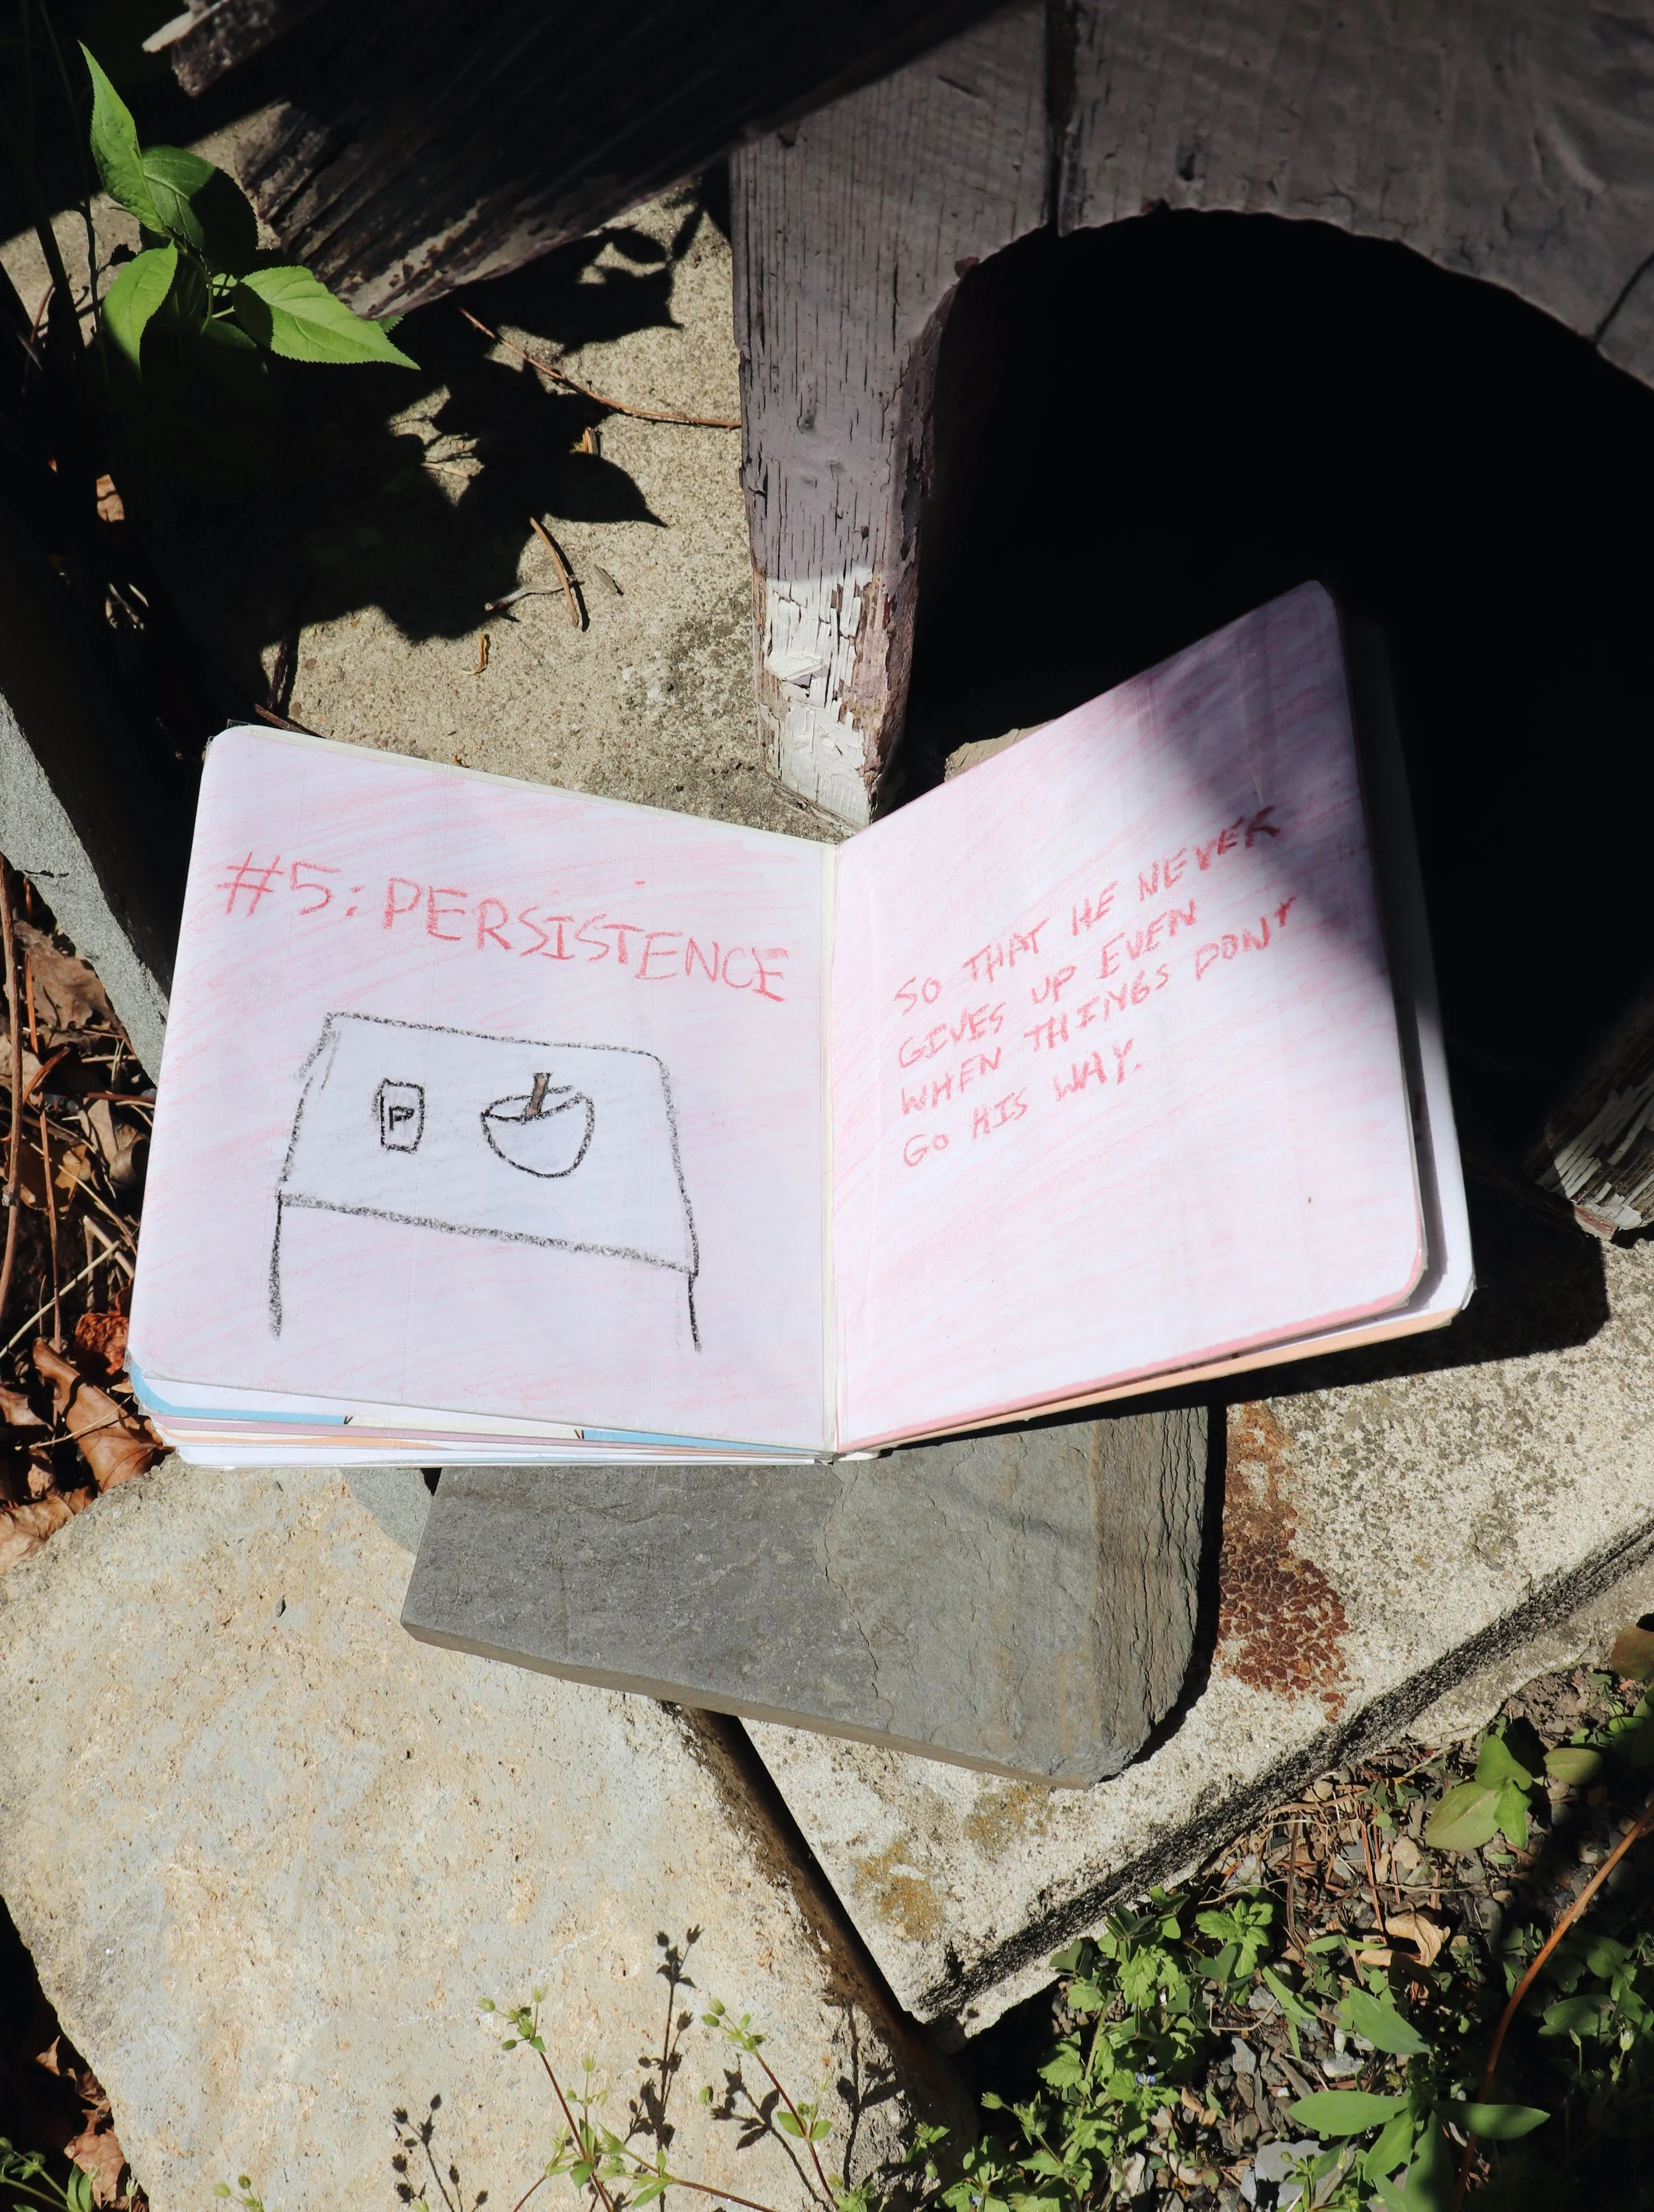 #5: PERSISTENCE
P
SO THAT HE NEVER
GIVES UP EVEN
WHEN THINGS DON'T
GO HIS WAY.